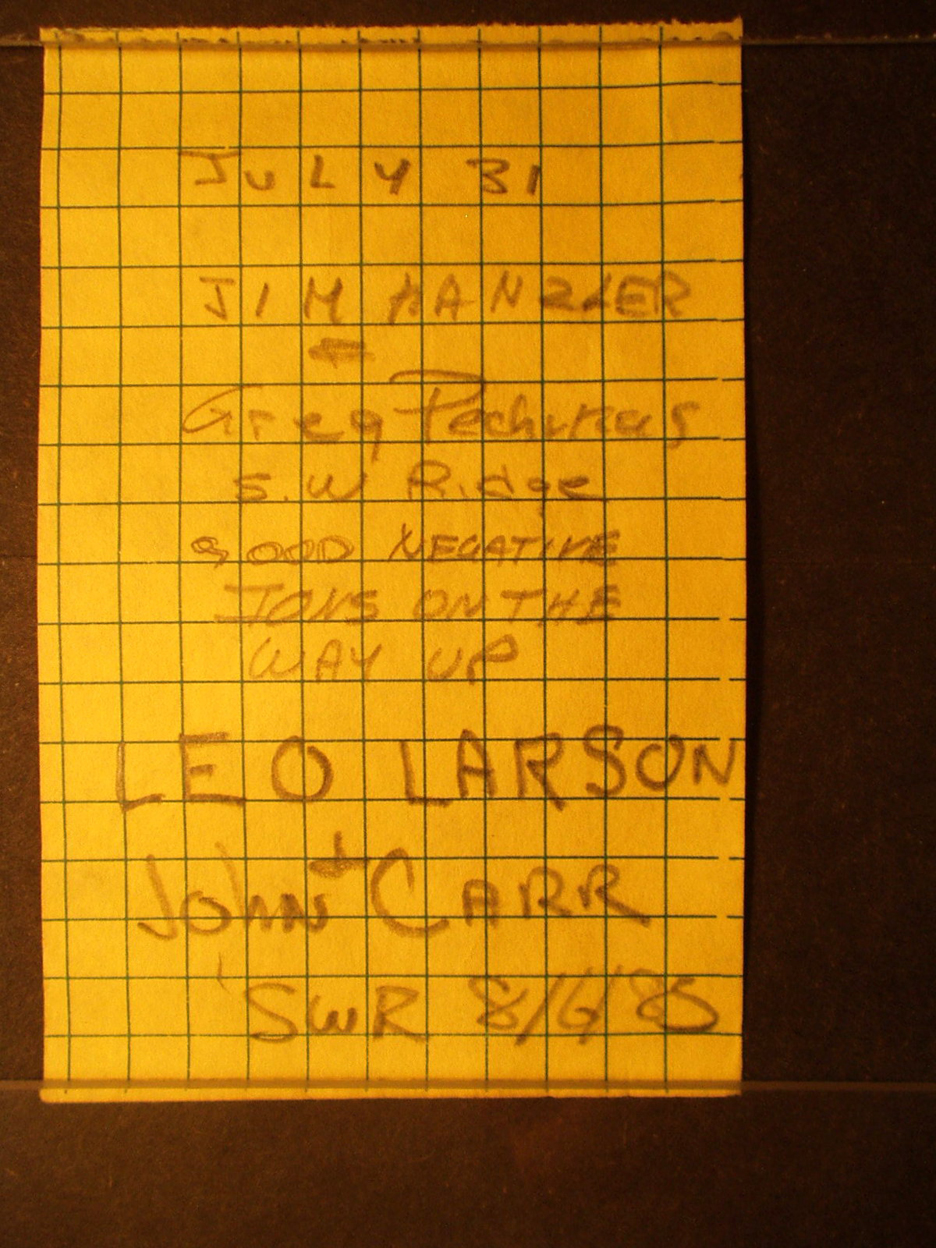 JULY 31
JIM KANZLER
+
Greg
S.W Ridge
GOOD NEGATIVE
IONS ON THE
WAY UP
LEO LARSON
+
John CARR
SWR 8/6/85